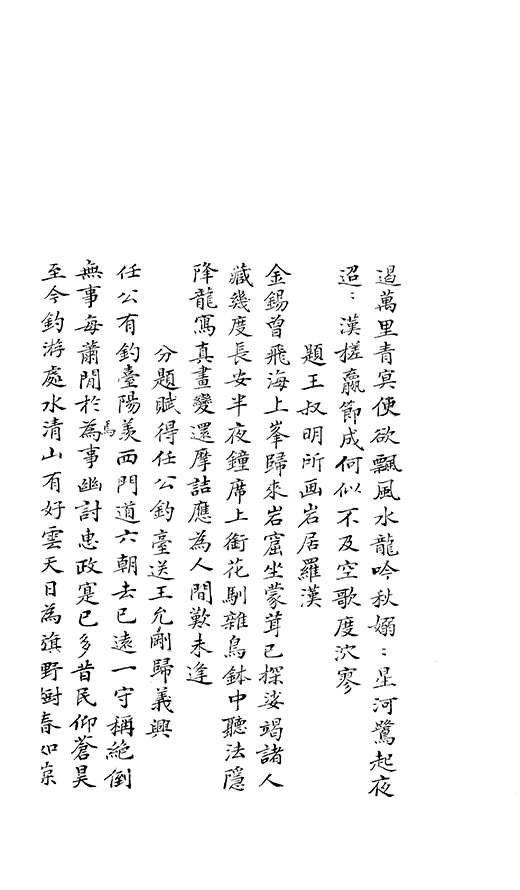 遏萬里青冥便欲飄風水龍吟秋嫋：星河鷺起夜
迢：漢搓贏節成何似不及空歌度泬寥
題王叔明所画岩居羅漢
金錫曾飛海上峯歸來岩窟坐蒙茸已探娑竭諸人
藏幾度長安半夜鐘席上銜花馴雜鳥鉢中聽法隱
降龍寫真畫變還摩詰應為人間歎未逢
分題賦得任公釣臺送王允剛歸義興
任公有釣臺陽羨西門道六朝去已遠一守稱絕倒
無事每蕭閒於為馬事幽討惠政寔已多昔民仰蒼昊
至今釣游處水清山有好雲天日為旗野樹春如